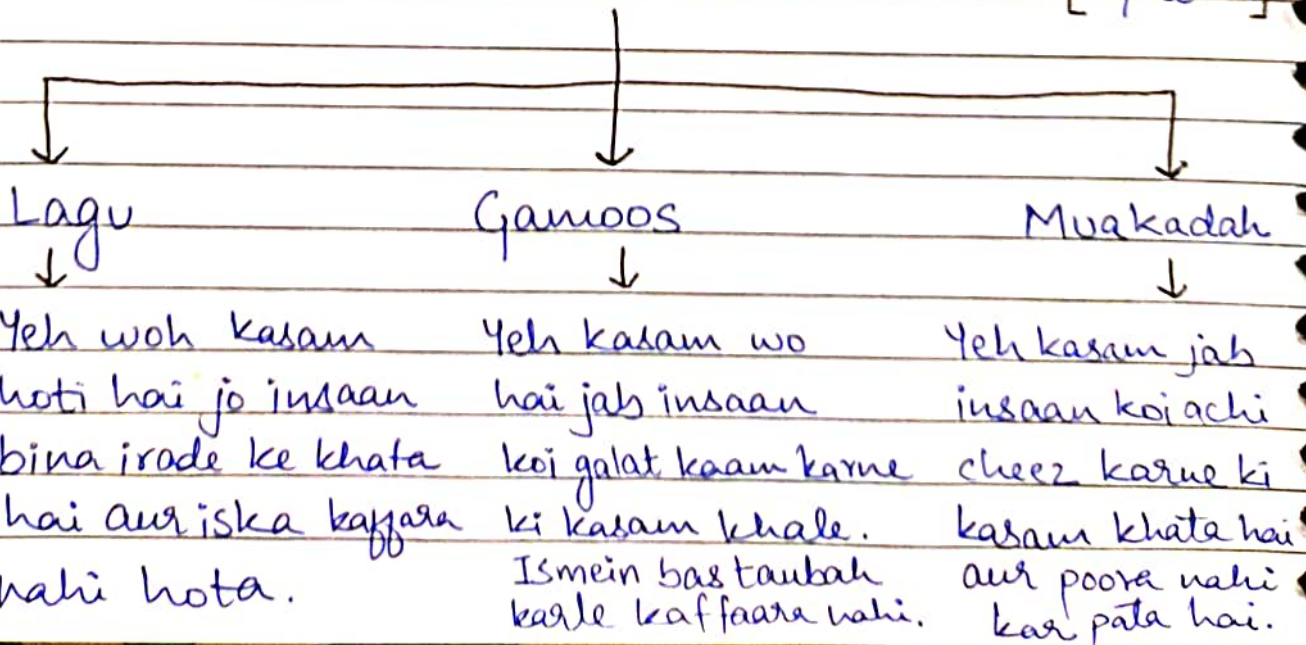 Lagu
Gamoos
Muakadah
Yeh woh kasam
hoti hai jo insaan
bina irade ke khata
hai aur iska kaffara
nahi hota.
Yeh kasam wo
hai jab insaan
koi galat kaam karne
ki kasam khale.
Ismein bas taubah
karle kaffaara nahi.
Yeh kasam jab
insaan koi achi
cheez karne ki
kasam khata hai
aur poora nahi
kar pata hai.